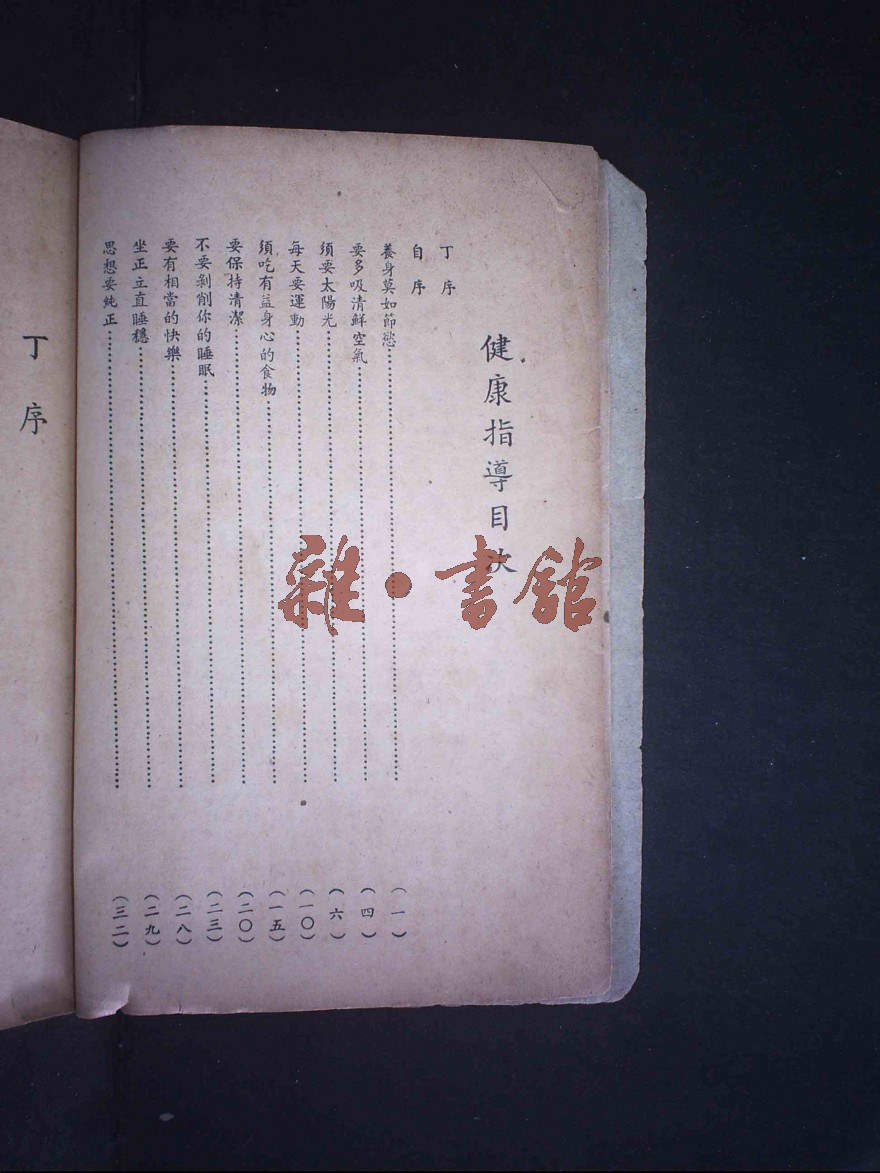 健康指導目次
丁序
自序
養身莫如節慾……(一)
要多吸清鮮空氣……(四)
須要太陽光……(六)
每天要運動……(一〇)
須吃有益身心的食物……(一五)
要保持清潔……(二〇)
不要剝削你的睡眠……(二三)
要有相當的快樂……(二八)
坐正立直睡穩……(二九)
思想要純正……(三二)
丁序
雜·書館